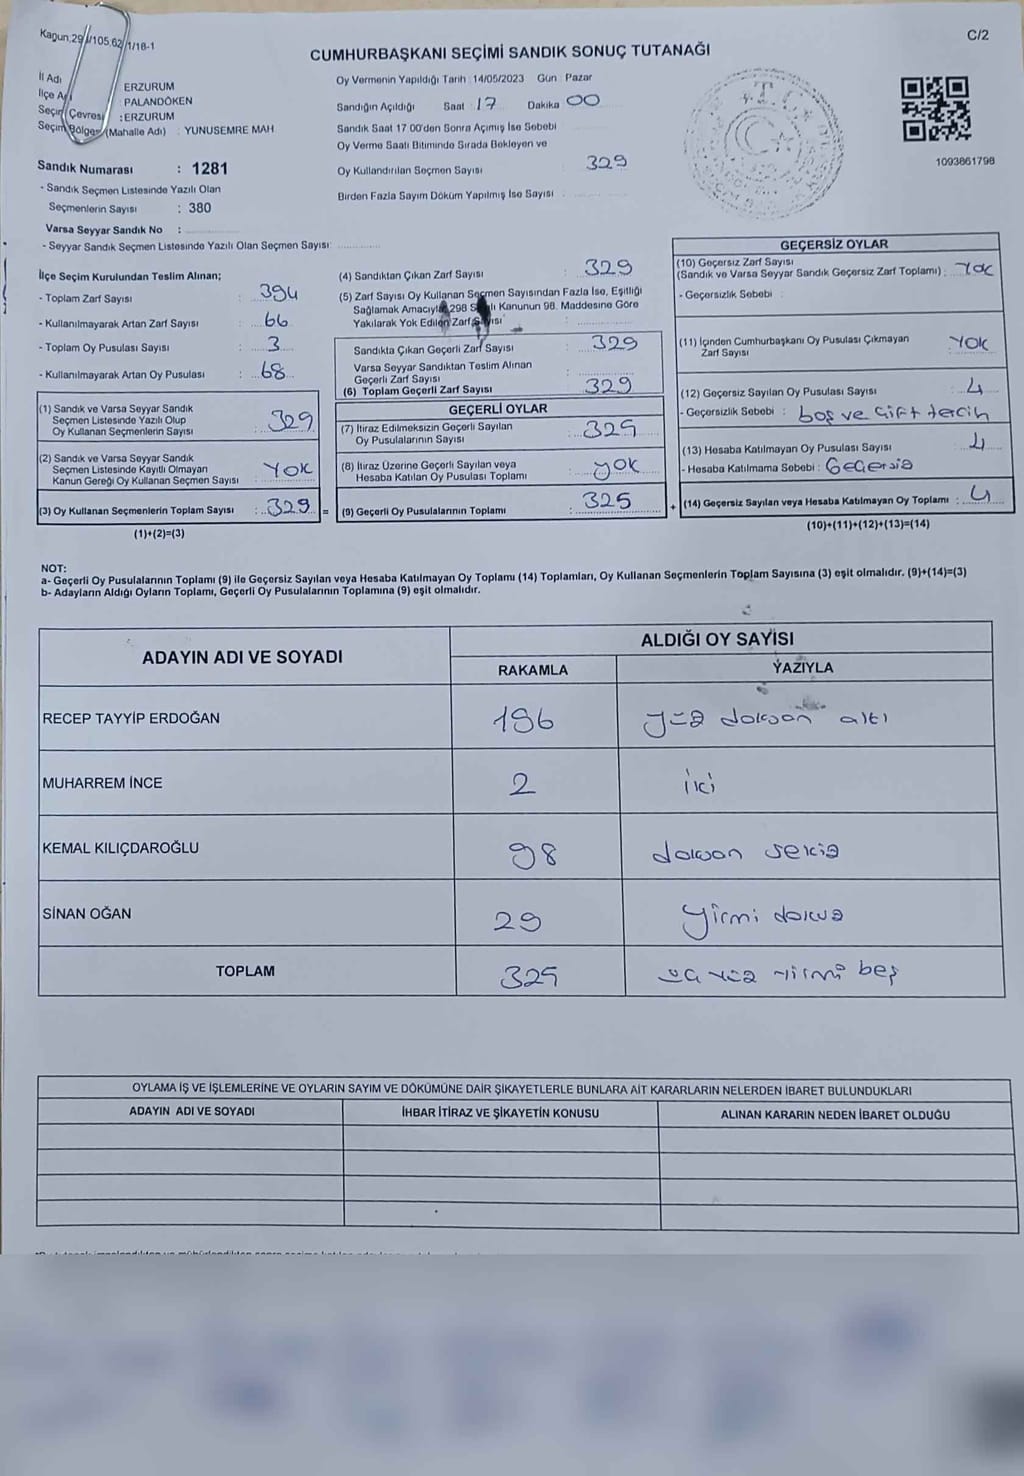 Kanun:298/105,62/1/18-1
C/2
CUMHURBAŞKANI SEÇİMİ SANDIK SONUÇ TUTANAĞI
İl Adı : ERZURUM
İlçe Adı : PALANDÖKEN
Seçim Çevresi : ERZURUM
Seçim Bölgesi (Mahalle Adı) : YUNUSEMRE MAH
Sandık Numarası : 1281
- Sandık Seçmen Listesinde Yazılı Olan
Seçmenlerin Sayısı : 380
Varsa Seyyar Sandık No :
- Seyyar Sandık Seçmen Listesinde Yazılı Olan Seçmen Sayısı:
Oy Vermenin Yapıldığı Tarih : 14/05/2023 Gün : Pazar
Sandığın Açıldığı Saat : 17 Dakika 00
Sandık Saat 17.00'den Sonra Açılmış İse Sebebi
Oy Verme Saati Bitiminde Sırada Bekleyen ve
Oy Kullandırılan Seçmen Sayısı : 329
Birden Fazla Sayım Döküm Yapılmış İse Sayısı :
1093861798
İlçe Seçim Kurulundan Teslim Alınan;
- Toplam Zarf Sayısı : 394
- Kullanılmayarak Artan Zarf Sayısı : 66
- Toplam Oy Pusulası Sayısı : 3
- Kullanılmayarak Artan Oy Pusulası : 68
(1) Sandık ve Varsa Seyyar Sandık
Seçmen Listesinde Yazılı Olup
Oy Kullanan Seçmenlerin Sayısı : 329
(2) Sandık ve Varsa Seyyar Sandık
Seçmen Listesinde Kayıtlı Olmayan
Kanun Gereği Oy Kullanan Seçmen Sayısı : YOK
(3) Oy Kullanan Seçmenlerin Toplam Sayısı : 329 =
(1)+(2)=(3)
(4) Sandıktan Çıkan Zarf Sayısı : 329
(5) Zarf Sayısı Oy Kullanan Seçmen Sayısından Fazla İse, Eşitliği
Sağlamak Amacıyla 298 Sayılı Kanunun 98. Maddesine Göre
Yakılarak Yok Edilen Zarf Sayısı :
Sandıkta Çıkan Geçerli Zarf Sayısı : 329
Varsa Seyyar Sandıktan Teslim Alınan
Geçerli Zarf Sayısı :
(6) Toplam Geçerli Zarf Sayısı : 329
GEÇERLİ OYLAR
(7) İtiraz Edilmeksizin Geçerli Sayılan
Oy Pusulalarının Sayısı : 325
(8) İtiraz Üzerine Geçerli Sayılan veya
Hesaba Katılan Oy Pusulası Toplamı : yok
(9) Geçerli Oy Pusulalarının Toplamı : 325 +
GEÇERSİZ OYLAR
(10) Geçersiz Zarf Sayısı
(Sandık ve Varsa Seyyar Sandık Geçersiz Zarf Toplamı) : Yok
- Geçersizlik Sebebi :
(11) İçinden Cumhurbaşkanı Oy Pusulası Çıkmayan
Zarf Sayısı : YOK
(12) Geçersiz Sayılan Oy Pusulası Sayısı : 4
- Geçersizlik Sebebi : boş ve Çift tercih
(13) Hesaba Katılmayan Oy Pusulası Sayısı : 4
- Hesaba Katılmama Sebebi : Geçersiz
(14) Geçersiz Sayılan veya Hesaba Katılmayan Oy Toplamı : 4
(10)+(11)+(12)+(13)=(14)
NOT:
a- Geçerli Oy Pusulalarının Toplamı (9) ile Geçersiz Sayılan veya Hesaba Katılmayan Oy Toplamı (14) Toplamları, Oy Kullanan Seçmenlerin Toplam Sayısına (3) eşit olmalıdır. (9)+(14)=(3)
b- Adayların Aldığı Oyların Toplamı, Geçerli Oy Pusulalarının Toplamına (9) eşit olmalıdır.
ADAYIN ADI VE SOYADI
ALDIĞI OY SAYISI
RAKAMLA YAZIYLA
RECEP TAYYİP ERDOĞAN 196 yüz doksan altı
MUHARREM İNCE 2 iki
KEMAL KILIÇDAROĞLU 98 doksan sekiz
SİNAN OĞAN 29 Yirmi dokuz
TOPLAM 325 üç yüz yirmi beş
OYLAMA İŞ VE İŞLEMLERİNE VE OYLARIN SAYIM VE DÖKÜMÜNE DAİR ŞİKAYETLERLE BUNLARA AİT KARARLARIN NELERDEN İBARET BULUNDUKLARI
ADAYIN ADI VE SOYADI İHBAR İTİRAZ VE ŞİKAYETİN KONUSU ALINAN KARARIN NEDEN İBARET OLDUĞU